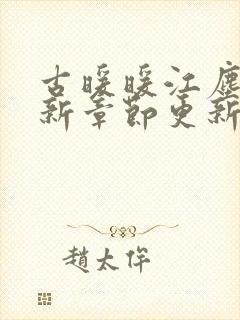 古暖暖江塵
新章節更新
趙太佯